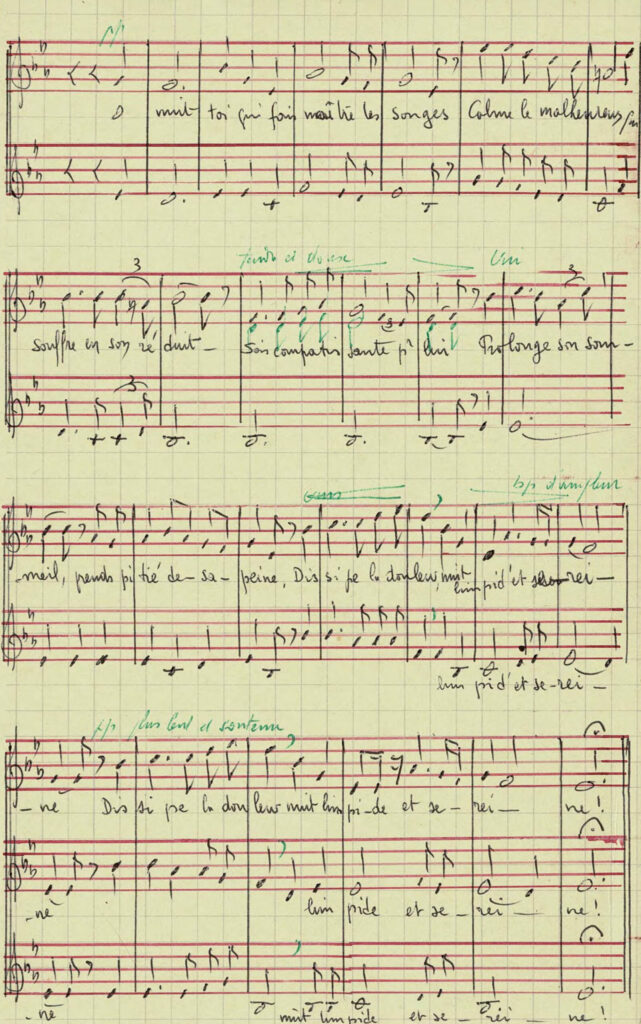 pp
O nuit toi qui fais naître les songes Calme le malheureux qui
3
tendre et doux
Uni
3
souffre en son ré duit_ Sois compatis sante pr lui Prolonge son som-
3
-meil, prends pi tié de- sa- peine, Dis si pe la douleur, nuit limpid' et se rei-
limpid' et se-rei-
pp plus lent et soutenu
-ne Dis si pe la douleur nuit limpi-de et se-rei- ne!
-ne limpide et se-rei- ne!
-ne nuit limpide et se- rei- ne!